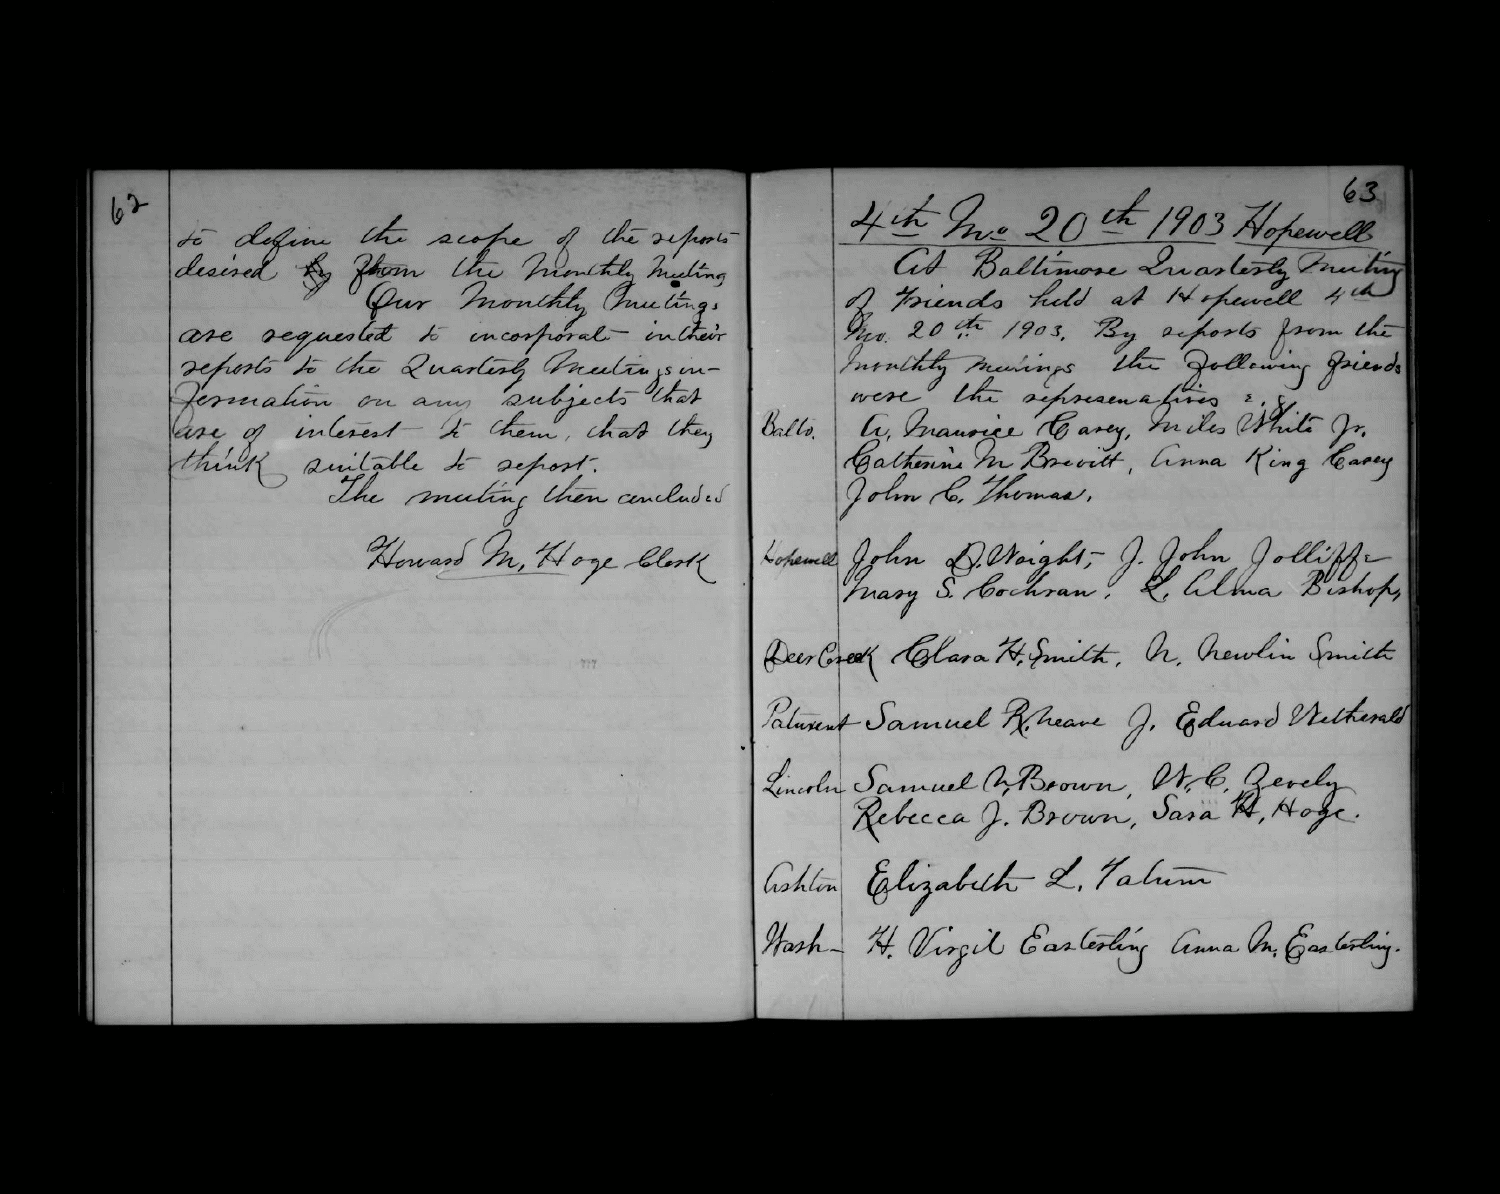 62
to define the scope of the reports
desired by from the Monthly Meeting
Our Monthly Meetings
are requested to incorporate in their
reports to the Quarterly Meetings in-
formation on any subjects that
are of interest to them, that they
think suitable to report.
The meeting then concluded
Howard M. Hoge Clerk
63
4th Mo 20th 1903 Hopewell
At Baltimore Quarterly Meeting
of Friends held at Hopewell 4th
Mo. 20th 1903. By reports from the
Monthly meetings the following friends
were the represenatives
Balto. A. Maurice Carey, Miles White Jr.
Catherine M Brevitt, Anna King Carey
John C. Thomas.
Hopewell John D. Wright, J. John Jolliffe
Mary S. Cochran. L. Alma Bishop,
Deer Creek Clara H. Smith, N. Newlin Smith
Patuxent Samuel R. Neave J. Edward Wetherald
Lincoln Samuel N. Brown, W. C. Zevely
Rebecca J. Brown, Sara H. Hoge.
Ashton Elizabeth L. Tatum
Wash- H. Virgil Easterling Anna M. Easterling.